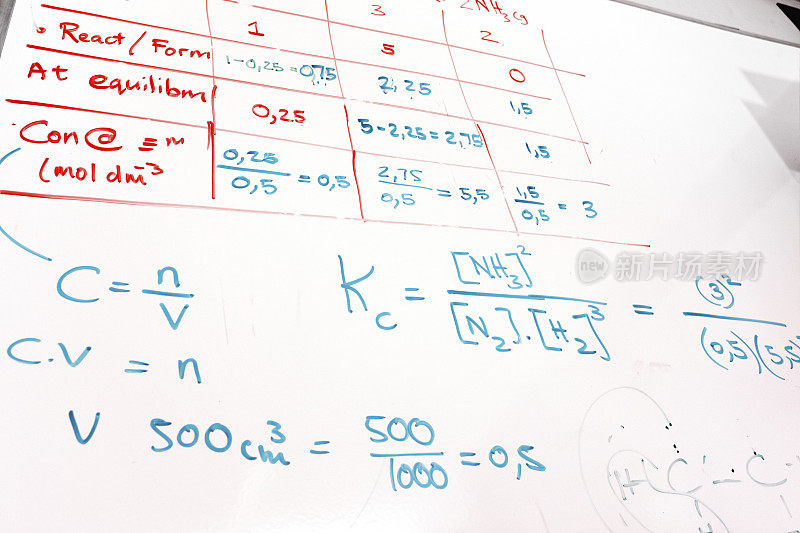 3 2NH₃g
1 3 2
• React/Form 1-0,25=0,75 5 0
At equilibm 2,25 1,5
0,25 5-2,25=2,75 1,5
Con@ ≡m 0,25/0,5 = 0,5 2,75/0,5 = 5,5 1,5/0,5 = 3
(mol dm⁻³
C = n/V
Kc = [NH₃]²/[N₂].[H₂]³ = (3)²/(0,5)(5,5
C.V = n
V 500cm³ = 500/1000 = 0,5
H C - C
H
new 新片场素材